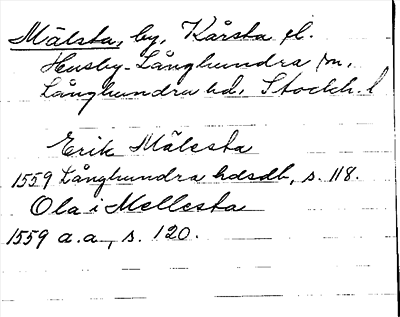 Mälsta, by, Kårsta el.
Husby-Långhundra sn,
Långhundra hd, Stockh. l
Erik Mälesta
1559 Långhundra hdsdb, s. 118.
Ola i Mellesta
1559 a.a., s. 120.